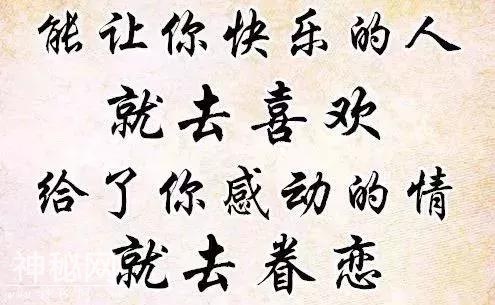 能让你快乐的人
就去喜欢
给了你感动的情
就去眷恋
神秘网